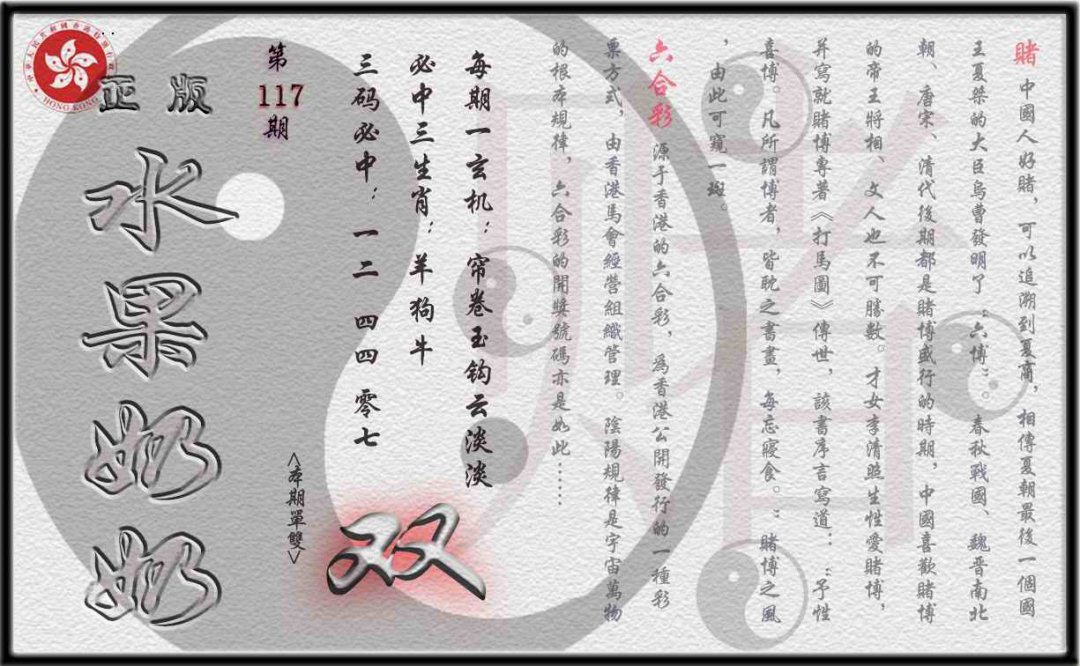 賭 中國人好賭，可以追溯到夏商，相傳夏朝最後一個國
王夏桀的大臣烏曹發明了“六博”。春秋戰國、魏晉南北
朝、唐宋、清代後期都是賭博盛行的時期，中國喜歡賭博
的帝王將相、文人也不可勝數。才女李清照生性愛賭博，
并寫就賭博專著《打馬圖》傳世，該書序言寫道：“予性
喜博。凡所謂博者，皆耽之書畫，每忘寢食。”賭博之風
，由此可窺一斑。
六合彩 源于香港的六合彩，爲香港公開發行的一種彩
票方式，由香港馬會經營組織管理。陰陽規律是宇宙萬物
的根本規律，六合彩的開獎號碼亦是如此……
每期一玄机：帘卷玉钩云淡淡
必中三生肖：羊狗牛
三码必中：一二 四四 零七
双
<本期單雙>
第
117
期
正版
水果奶奶
HONG KONG